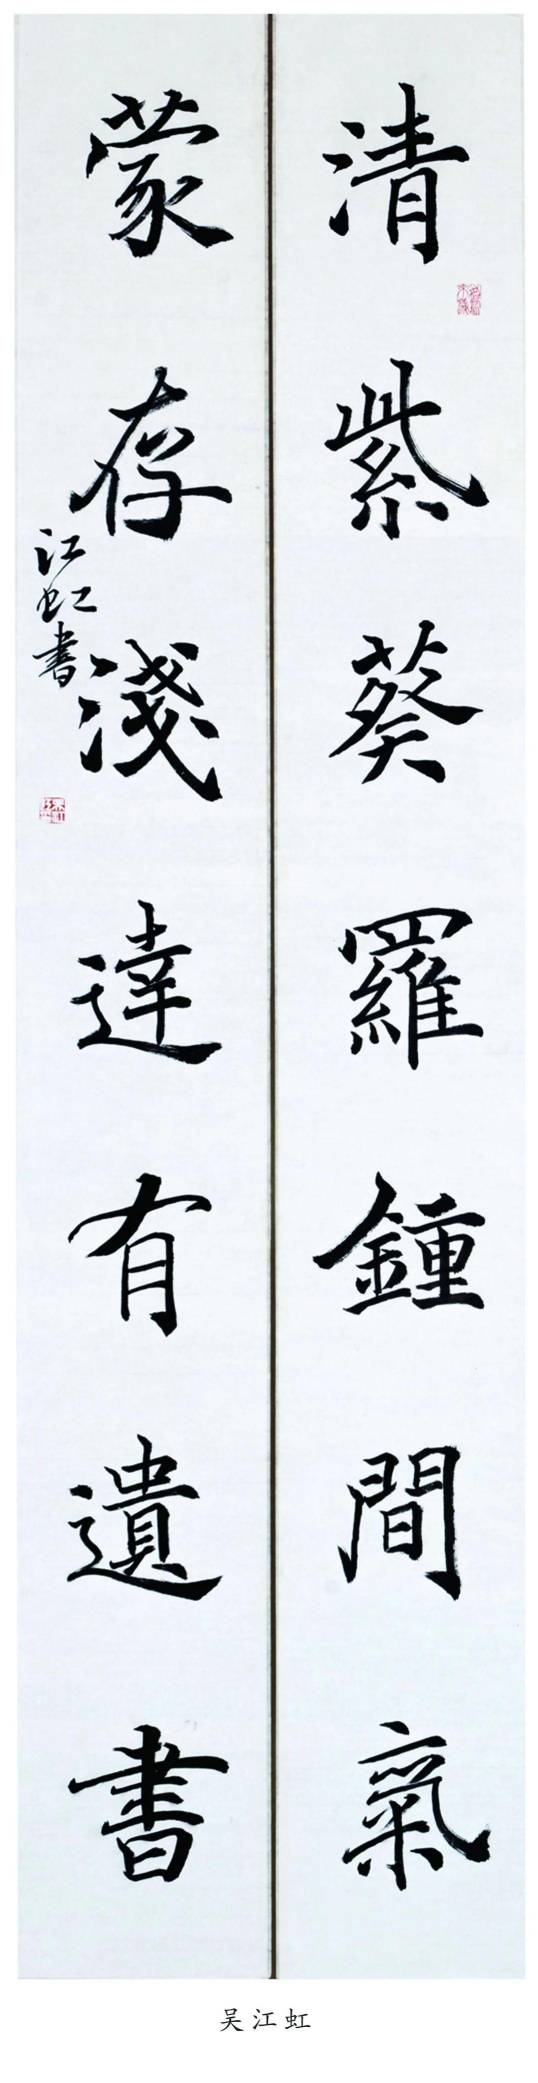 清紫葵羅鍾間氣
蒙存淺達有遺書
江虹書
吴江虹